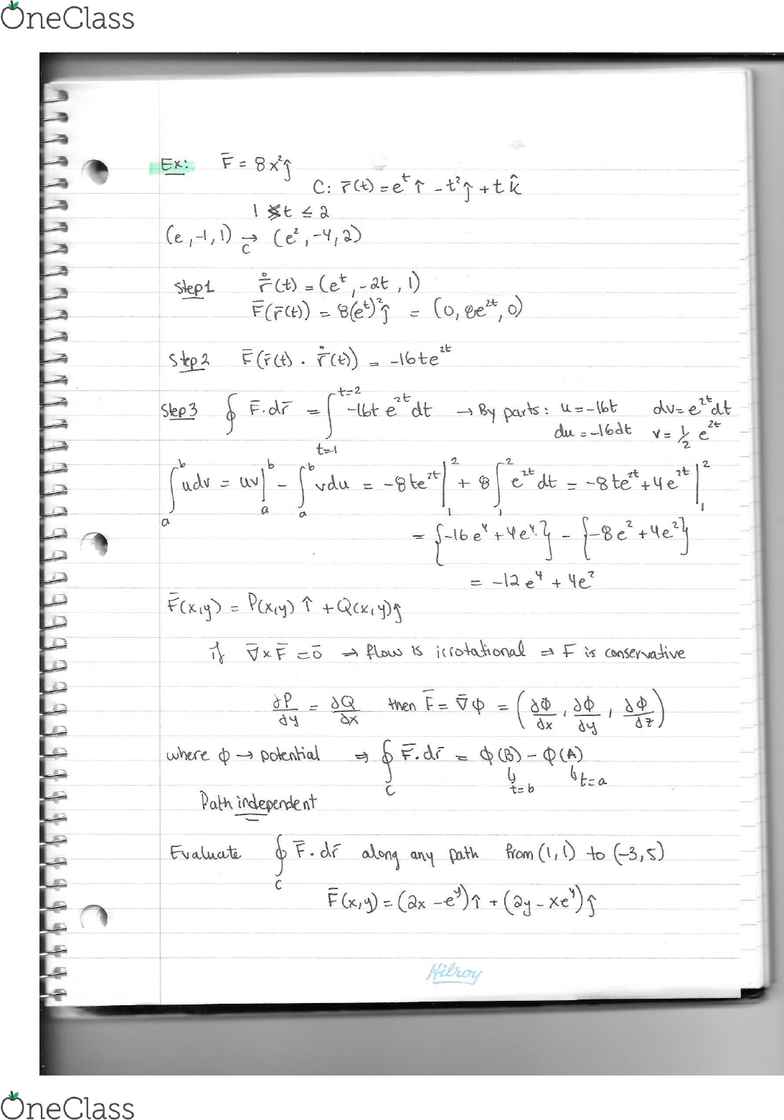 OneClass
Ex: F̄ = 8x²ĵ
C: r̄(t) = eᵗ î - t² ĵ + t k̂
1 ≤ t ≤ 2
(e, -1, 1) →_C (e², -4, 2)
Step1 r̊(t) = (eᵗ, -2t, 1)
F̄(r̄(t)) = 8(eᵗ)² ĵ = (0, 8e²ᵗ, 0)
Step2 F̄(r̄(t) · r̊(t)) = -16te²ᵗ
Step3 ∮ F̄·dr̄ = ∫_{t=1}^{t=2} -16t e²ᵗ dt → By parts: u = -16t dv = e²ᵗ dt
du = -16dt v = ½ e²ᵗ
∫_a^b udv = uv|_a^b - ∫_a^b vdu = -8te²ᵗ|_1^2 + 8∫_1^2 e²ᵗ dt = -8te²ᵗ + 4e²ᵗ|_1^2
= {-16e⁴ + 4e⁴} - {-8e² + 4e²}
= -12e⁴ + 4e²
F̄(x,y) = P(x,y) î + Q(x,y) ĵ
if ∇̄ × F̄ = 0̄ → flow is irrotational ⇒ F is conservative
∂P/∂y = ∂Q/∂x then F̄ = ∇̄Φ = (∂Φ/∂x, ∂Φ/∂y, ∂Φ/∂z)
where Φ → potential ⇒ ∮_C F̄·dr̄ = Φ(B) - Φ(A)
t=b t=a
Path independent
Evaluate ∮_C F̄·dr̄ along any path from (1,1) to (-3,5)
F̄(x,y) = (2x - eʸ) î + (2y - xeʸ) ĵ
Hilroy
OneClass